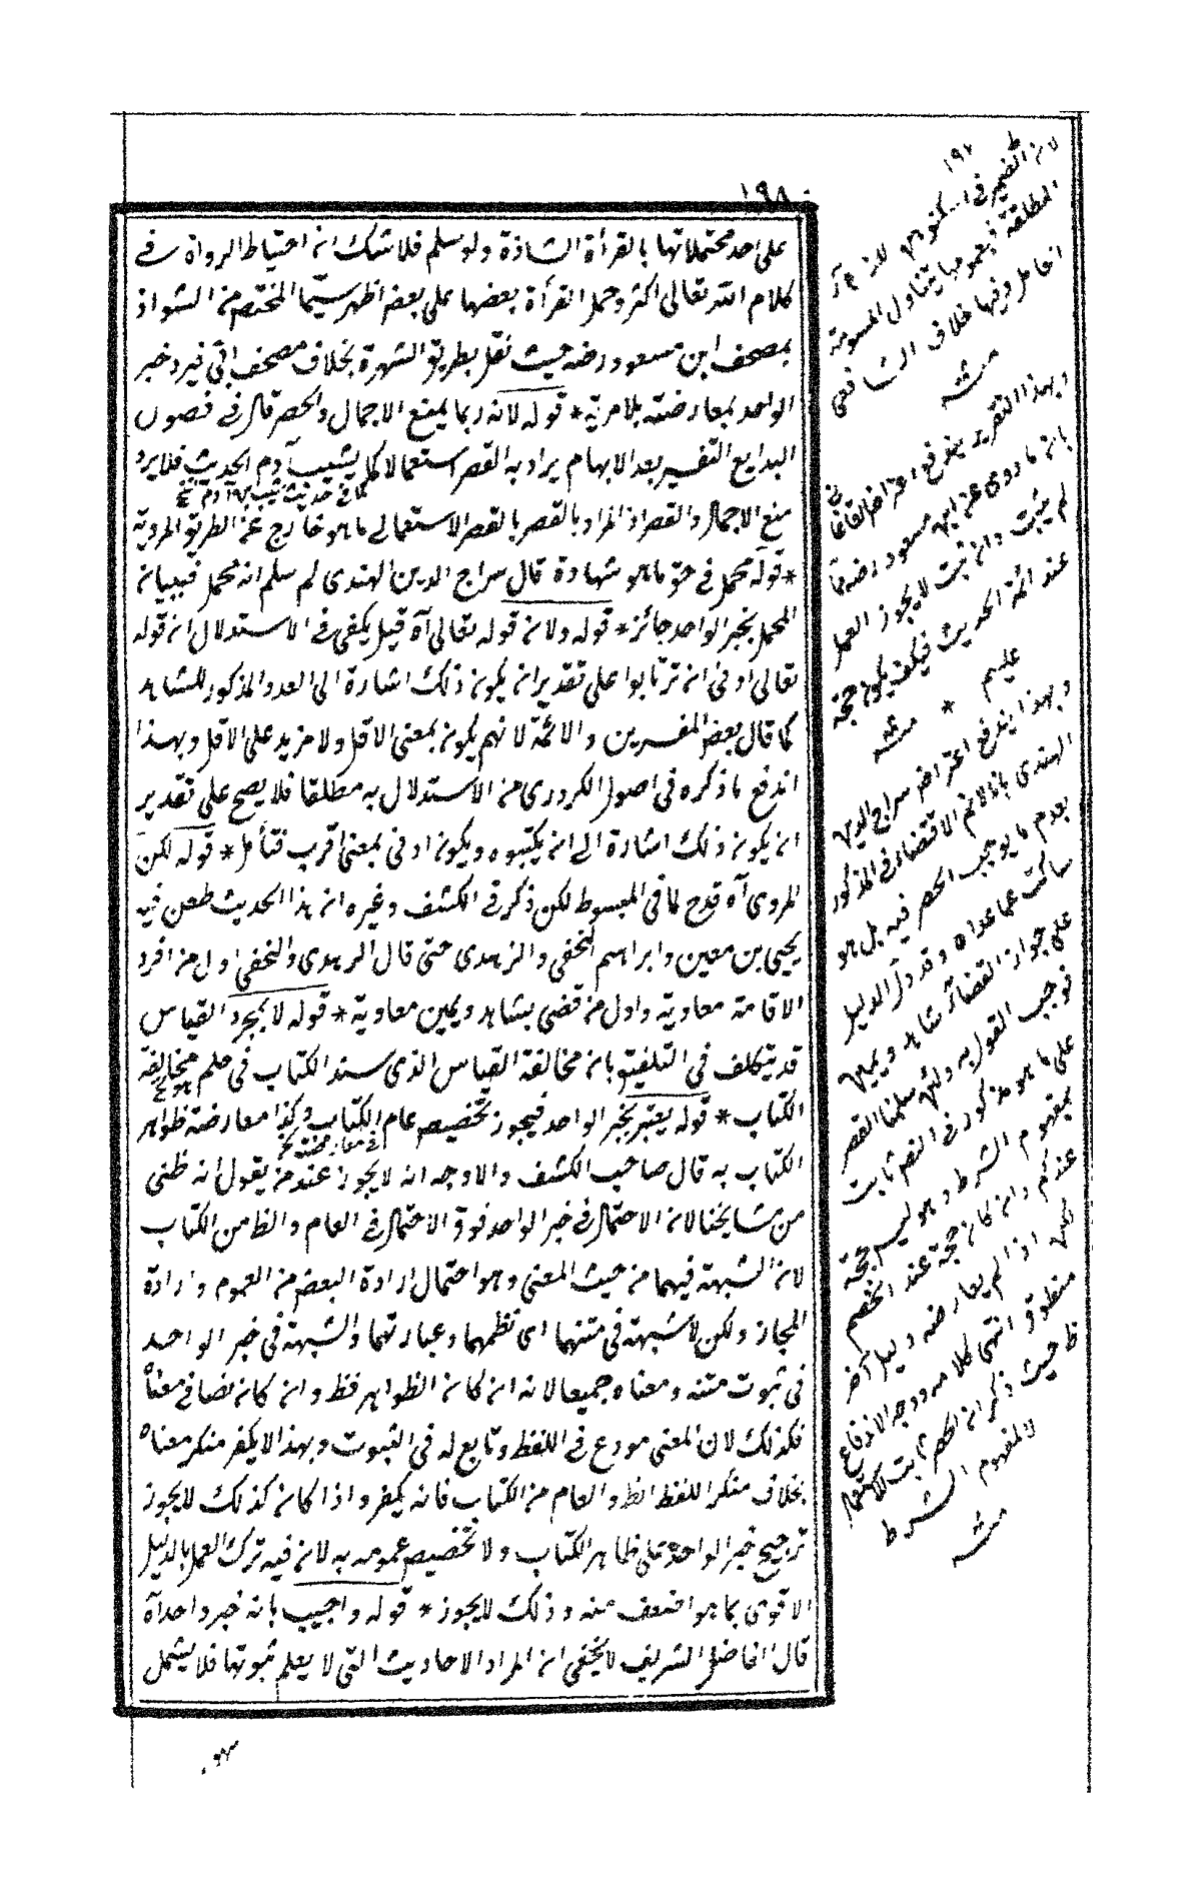 ١٩٨
على احد محتملاتها بالقرأة الشاذة ولو سلم فلا شك ان احتياط الرواة في
كلام الله تعالى اكثر وحمل القرأة بعضها على بعض اظهر سيما المختص من الشواذ
بمصحف ابن مسعود رضه حيث نقل بطريق الشهرة بخلاف مصحف ابي فيرد خبر
الواحد بمعارضته بلا مرية * قوله لانه ربما يمنع الاجمال والحصر قال في فصول
البدايع التفسير بعد الابهام يراد به القصر استعمالا كما يشيب آدم الحديث فلا يرد
كما في حديث يشيب بن آدم نسخ
منع الاجمال والقصر اذ المراد بالقصر بالقصر الاستعمالي ما هو خارج عن الطريق المروية
* قوله مجمل في حق ما هو شهادة قال سراج الدين الهندى لم سلم انه مجمل فببيانه
المجمل بخبر الواحد جائز * قوله ولان قوله تعالى آه قيل يكفي في الاستدلال ان قوله
تعالى ادنى ان ترتابوا على تقدير ان يكون ذلك اشارة الى العدد المذكور للشاهد
كما قال بعض المفسرين والائمة لانهم يكون بمعنى الاقل ولا مزيد على الاقل وبهذا
اندفع ما ذكره في اصول الكردرى من الاستدلال به مطلقا فلا يصح على تقدير
ان يكون ذلك اشارة الى ان يكتبوه ويكون ادنى بمعنى اقرب فتأمل * قوله لكن
المروى آه قدح لما في المبسوط لكن ذكر في الكشف وغيره ان هذا الحديث طعن فيه
يحيى بن معين وابراهيم النخعي والزهدى حتى قال الزهدى والنخعي اول من افرد
الاقامة معاوية واول من قضى بشاهد ويمين معاوية * قوله لا بمجرد القياس
قد يتكلف في التلفيق بان مخالفة القياس الذى سند الكتاب في حكم مخالفة
الكتاب * قوله يعتبر بخبر الواحد فيجوز تخصيص عام الكتاب وكذا معارضة ظواهر
في معارضته نسخ
الكتاب به قال صاحب الكشف والاوجه انه لا يجوز عند من يقول انه ظني
من مشايخنا لان الاحتمال في خبر الواحد فوق الاحتمال في العام والظ من الكتاب
لان الشبهة فيهما من حيث المعنى وهو احتمال ارادة البعض من العموم وارادة
المجاز ولكن لا شبهة في متنهما اى نظمهما وعبارتهما والشبهة في خبر الواحد
في ثبوت متنه ومعناه جميعا لانه ان كان الظواهر فظ وان كان نصا في معناه
فكذلك لان المعنى مودع في اللفظ وتابع له في الثبوت وبهذا لا يكفر منكر معناه
بخلاف منكر اللفظ الظ والعام من الكتاب فانه يكفر واذا كان كذلك لا يجوز
ترجيح خبر الواحد على ظاهر الكتاب ولا تخصيص عمومه به لان فيه ترك العمل بالدليل
الاقوى بما هو اضعف منه وذلك لا يجوز * قوله واجيب بانه خبر واحد آه
قال الفاضل الشريف لا يخفى ان المراد الاحاديث التي لا يعلم ثبوتها فلا يشمل
١٩٧
لان الضمير في اسكنوهن
المطلقة فبعمومها يتناول المبتوتة
الحامل وفيها خلاف الشافعى
منه
وبهذا التقرير يندفع اعتراض القاآنى
بان ما روى عن ابن مسعود رضه
لم يثبت وان ثبت لا يجوز العمل
عند ائمة الحديث فكيف يكون حجة
عليهم * منه
وبهذا يندفع اعتراض سراج الدين
الهندى بانا لا نم الاقتضاء في المذكور
بعدم ما يوجب الحصر فيه بل هو
ساكت عما عداه وقد دل الدليل
على جواز القضاء بشاهد ويمين
فوجب القول به ولئن سلمنا القصر
على ما هو مذكور في النص ثابت
بمفهوم الشرط وهو ليس حجة
عندكم وان كان حجة عند الخصم
لكن اذا لم يعارضه دليل آخر
منطوق انتهى كلامه ووجه الاندفاع
ظ حيث ذكر ان الحصر ثابت
لا لمفهوم الشرط
منه